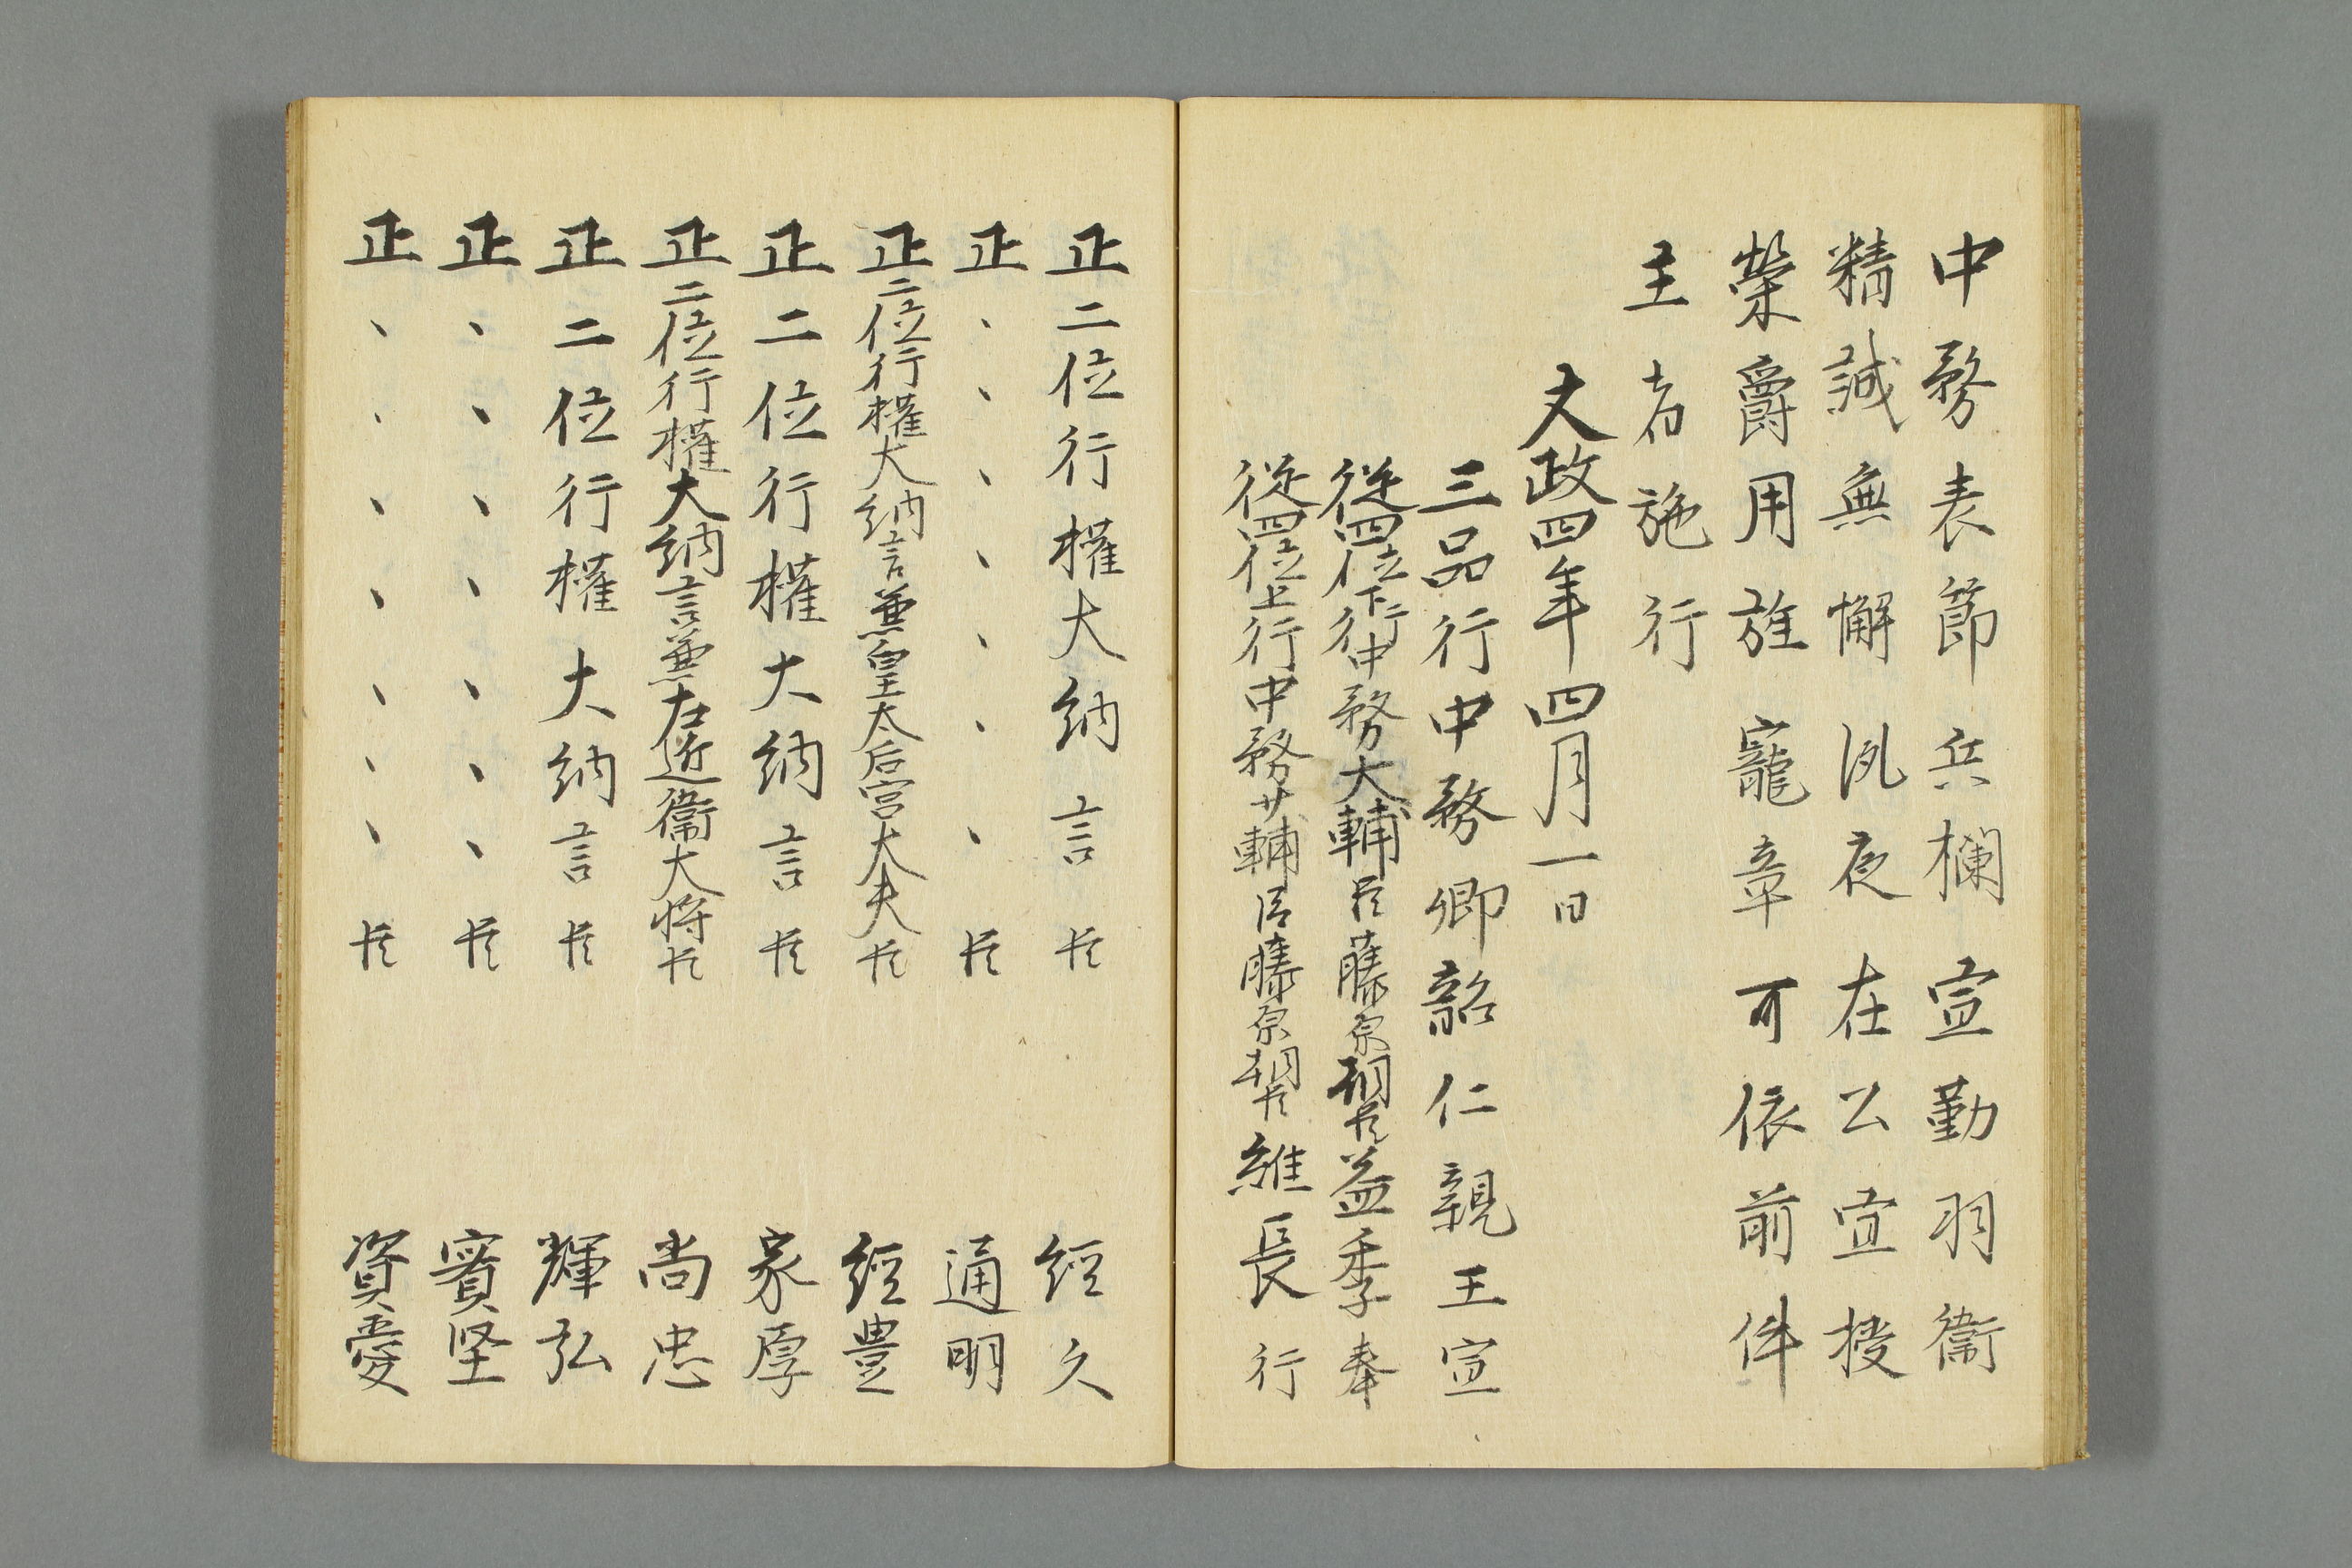 中務表節兵欄宣勤羽衞
精誠無懈夙夜在公宜授
榮爵用旌寵章可依前件
主者施行
文政四年四月一日
三品行中務卿韶仁親王宣
從四位下行中務大輔臣藤原朝臣益季奉
從四位上行中務少輔臣藤原朝臣維長行
正二位行權大納言臣 經久
正、、、、、、、臣 通明
正二位行權大納言兼皇太后宮大夫臣 經豊
正二位行權大納言臣 家厚
正二位行權大納言兼左近衞大将臣 尚忠
正二位行權大納言臣 輝弘
正、、、、、、、臣 賓堅
正、、、、、、、臣 資愛